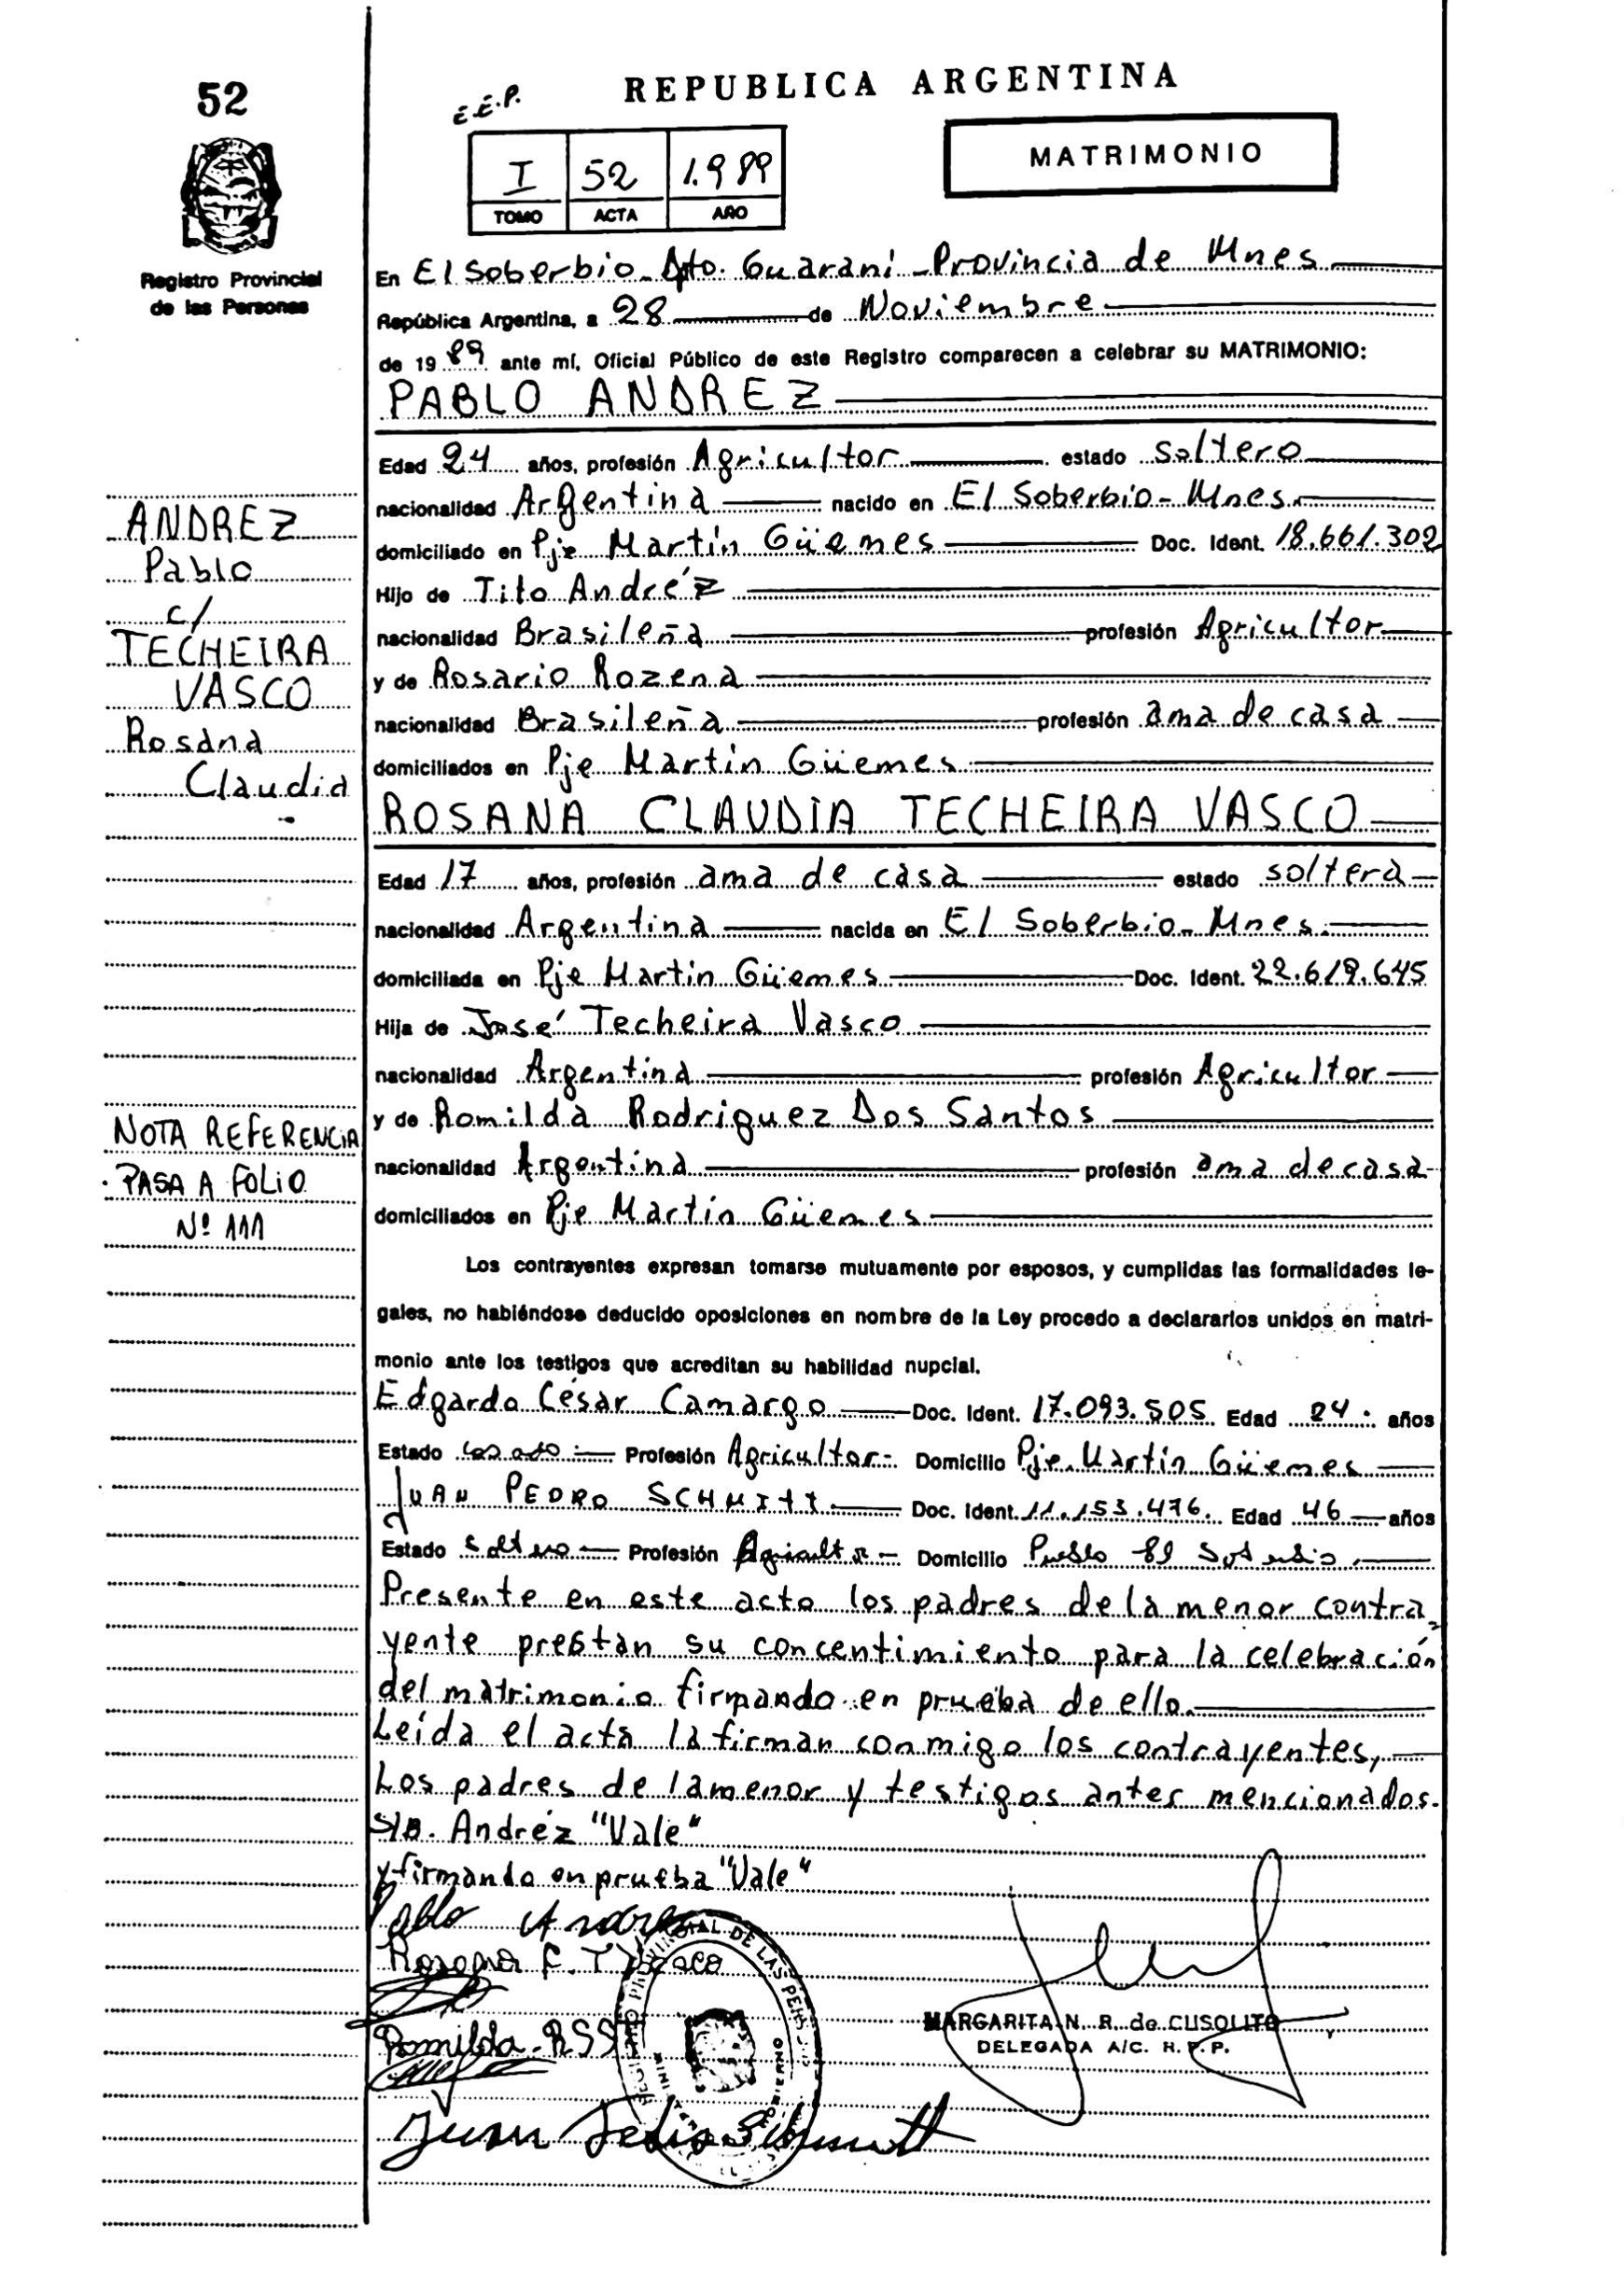 52
REPUBLICA ARGENTINA
E.E.P.
I 52 1.989
TOMO ACTA AÑO
MATRIMONIO
Registro Provincial
de las Personas
En El Soberbio - Dpto. Guaraní - Provincia de Mnes
República Argentina, a 28 de Noviembre
de 1989 ante mí, Oficial Público de este Registro comparecen a celebrar su MATRIMONIO:
PABLO ANDREZ
Edad 24 años, profesión Agricultor estado soltero
nacionalidad Argentina nacido en El Soberbio - Mnes.
domiciliado en Pje Martín Güemes Doc. Ident. 18.661.302
Hijo de Tito Andréz
nacionalidad Brasileña profesión Agricultor
y de Rosario Rozena
nacionalidad Brasileña profesión ama de casa
domiciliados en Pje Martín Güemes
ANDREZ
Pablo
c/
TECHEIRA
VASCO
Rosana
Claudia
ROSANA CLAUDIA TECHEIRA VASCO
Edad 17 años, profesión ama de casa estado soltera
nacionalidad Argentina nacida en El Soberbio - Mnes.
domiciliada en Pje Martín Güemes Doc. Ident. 22.619.645
Hija de José Techeira Vasco
nacionalidad Argentina profesión Agricultor
y de Romilda Rodriguez Dos Santos
nacionalidad Argentina profesión ama de casa
domiciliados en Pje Martín Güemes
NOTA REFERENCIA
PASA A FOLIO
Nº 111
Los contrayentes expresan tomarse mutuamente por esposos, y cumplidas las formalidades le-
gales, no habiéndose deducido oposiciones en nombre de la Ley procedo a declararlos unidos en matri-
monio ante los testigos que acreditan su habilidad nupcial.
Edgardo César Camargo Doc. Ident. 17.093.505 Edad 24 años
Estado casado Profesión Agricultor Domicilio Pje. Martín Güemes
JUAN PEDRO SCHMITT Doc. Ident. 11.153.476. Edad 46 años
Estado soltero Profesión Agricultor Domicilio Pueblo El Soberbio
Presente en este acto los padres de la menor contra-
yente prestan su concentimiento para la celebración
del matrimonio firmando en prueba de ello.
Leída el acta la firman conmigo los contrayentes,
Los padres de la menor y testigos antes mencionados.
S/B. Andréz "Vale"
y firmando en prueba "Vale"
Pablo Andrez
Romilda RSS
Juan Pedro Schmitt
MARGARITA N. R. de CUSOLITO
DELEGADA A/C. R. P. P.